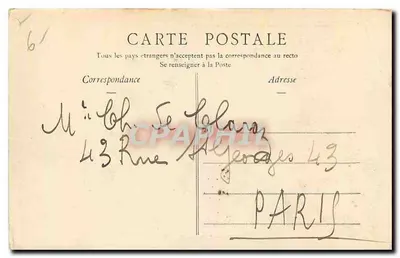 6
CARTE POSTALE
Tous les pays étrangers n'acceptent pas la correspondance au recto
Se renseigner à la Poste
Correspondance
Adresse
Ch. de
43 Rue St Georges 43
PARIS
CPAPHIL